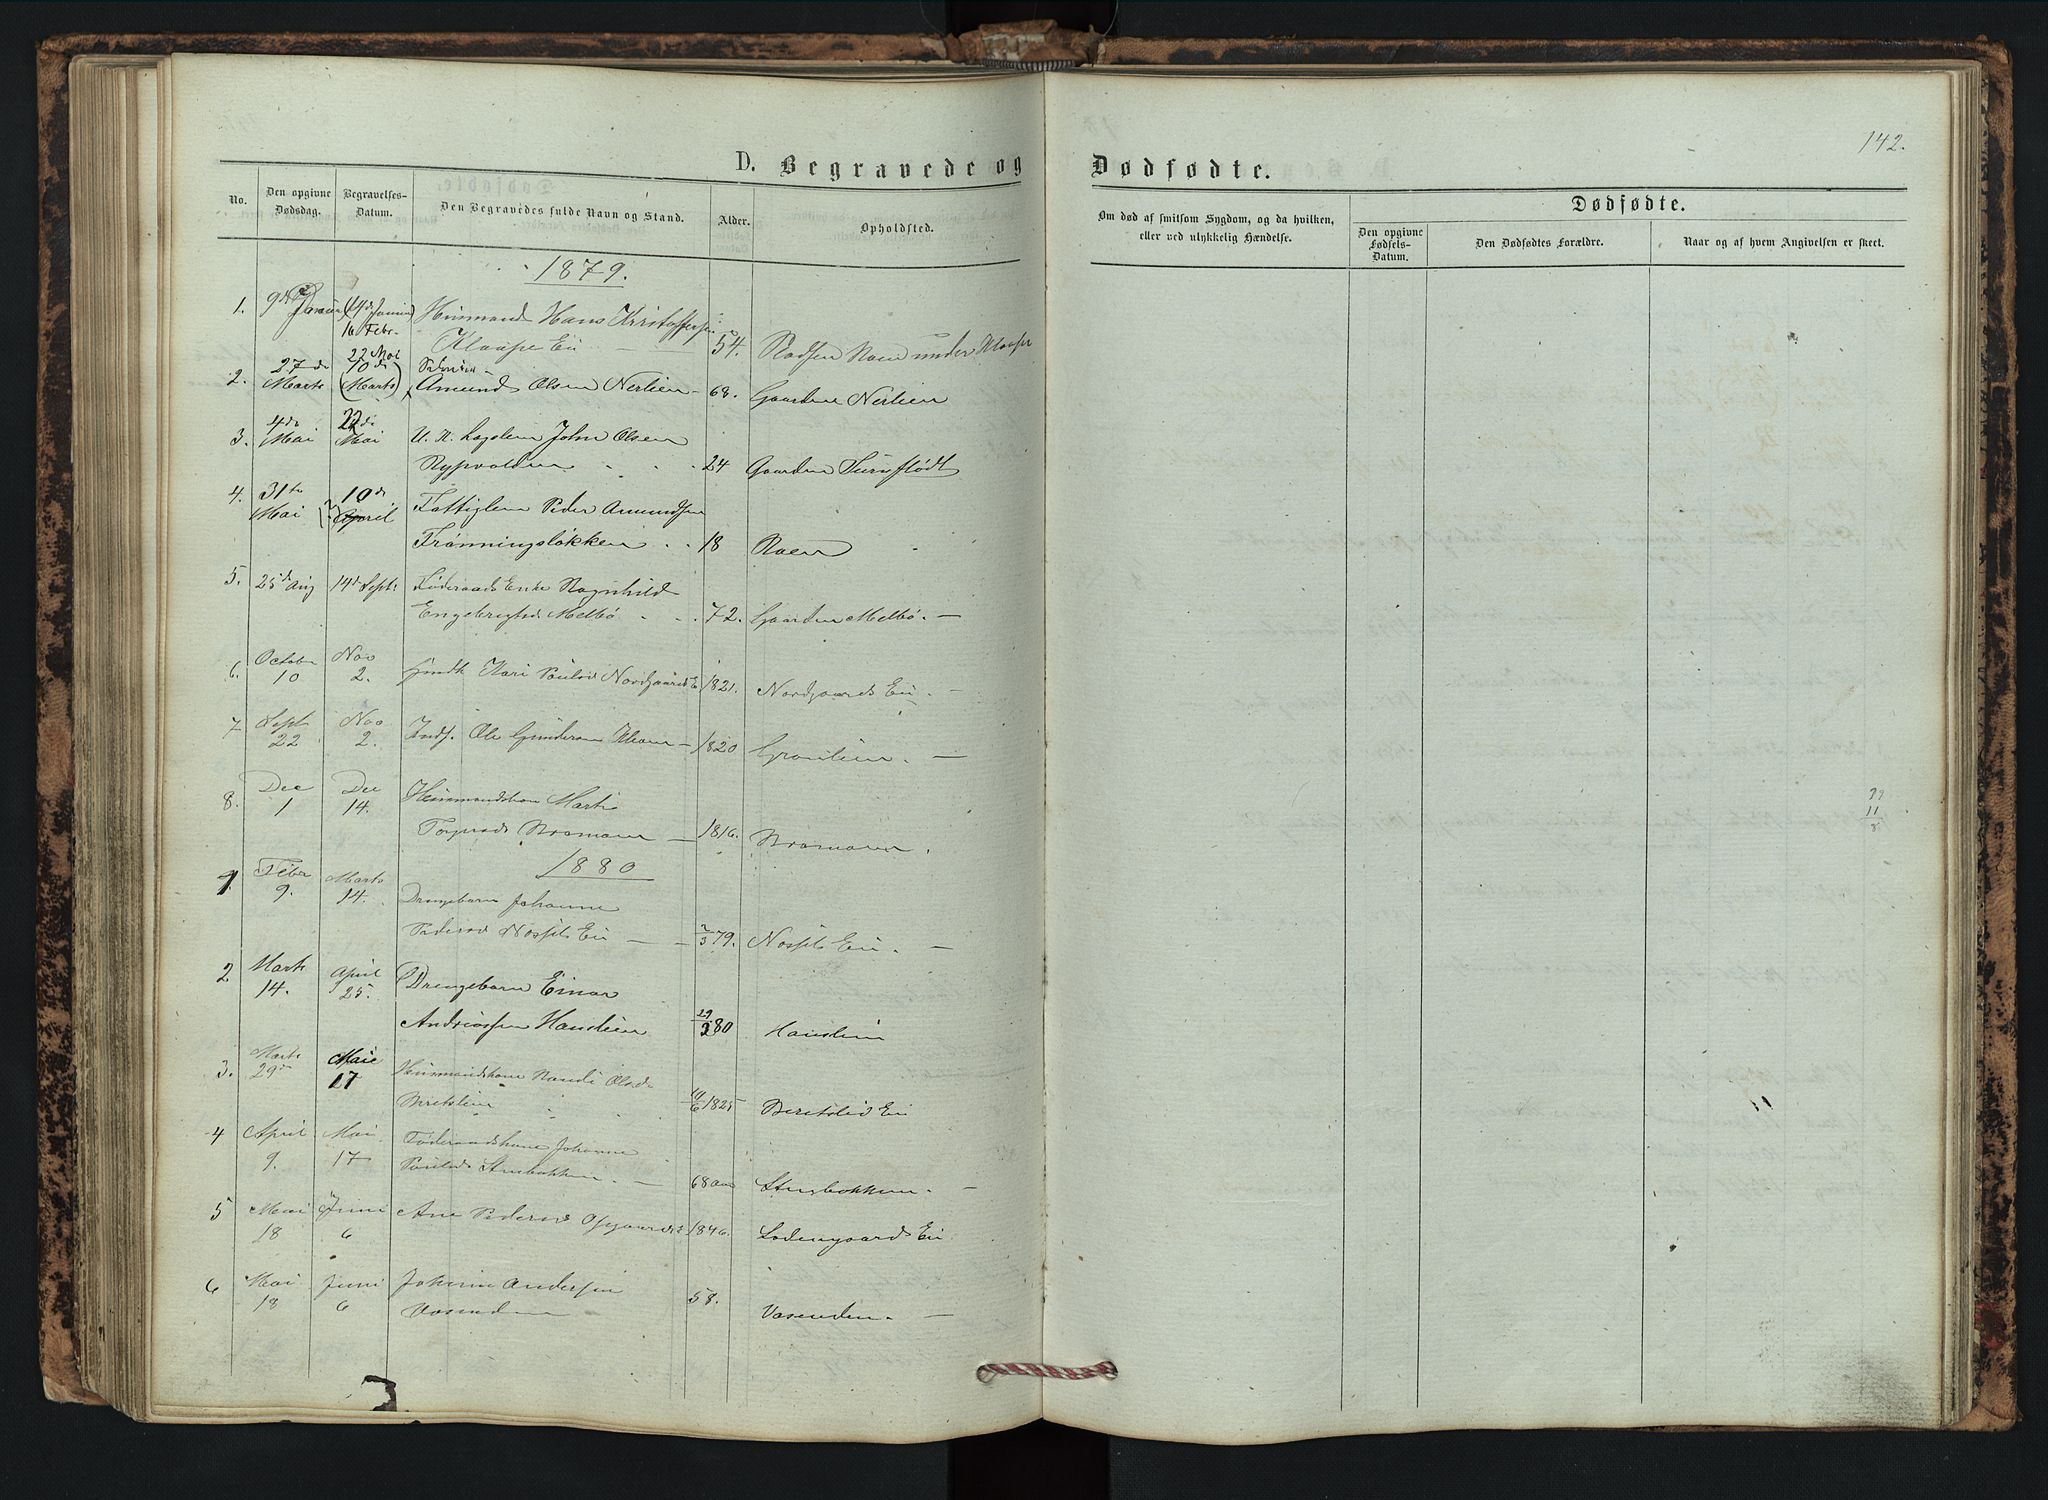 142.
D. Begravede og Dødfødte.
No.
Den opgivne Dødsdag.
Begravelses-Datum.
Den Begravedes fulde Navn og Stand.
Alder.
Opholdsted.
Om død af smitsom Sygdom, og da hvilken, eller ved ulykkelig Hændelse.
Dødfødte.
Den opgivne Fødsels-Datum.
Den Dødfødtes Forældre.
Naar og af hvem Angivelsen er skeet.
1879.
1. 9de Januar Huusmand Hans Kristoffersen
16 Febr. Klaape Ei 54. Raen under Klaape
2. 27de Marts 10de Marts
Amund Olsen Nerlien 68. Gaarden Nerlien
3. 4de Mai 22de Mai U. K. Lægslem John Olsen
Rypvolden 24 Gaarden
4. 31te Mai 10de April Fattiglem Peder Amundsen
Frønningsløkken 18 Raen
5. 25de Aug 14de Sept. Føderaads Enke Ragnhild
Engebrigtsd Melbø 72. Gaarden Melbø.
6. October 10 Nov 2. Kari Poulsd Nordgaards E 1821. Nordgaards Ei.
7 Sept 22 Nov 2. Inds. Ole Gundersen 1820
8. Dec 1 Dec 14. Huusmandskone Marti
1816.
1880
1. Febr 9. Marts 14. Drengebarn Johanne
Pedersd Nosset Ei 2/3 79. Nosset Ei.
2 Marts 14. April 25. Drengebarn Einar
Andriassen Hauslien 29/2 80 Hauslien
3. Marts 29de Maie 17 Huusmandskone Randi Olsd
Beretslien 19/6 1825 Beretslid Ei
4 April 9. Mai 17 Føderaadskone Johanne
Poulsd Stusbakken 68 aar Stusbakken.
5 Mai 18 Juni 6 Ane Pedersd Opgaards 1846. Lodengaards Ei
6 Mai 18 Juni 6 Johan Andersen
Vasenden 58. Vasenden.
11
8